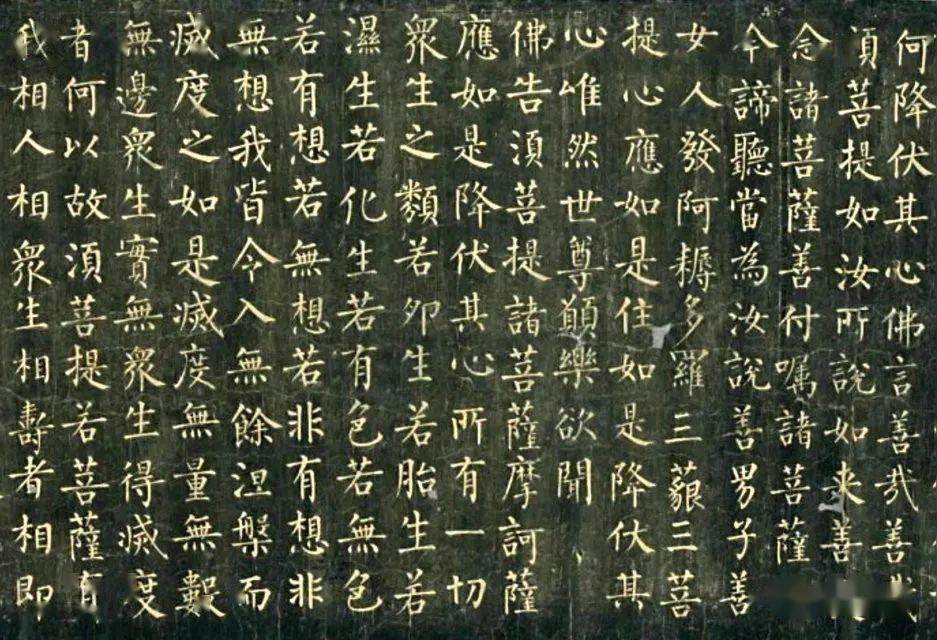 何降伏其心佛言善哉善哉
須菩提如汝所說如来善
念諸菩薩善付嘱諸菩薩
今諦聽當為汝說善男子善
女人發阿耨多羅三藐三菩
提心應如是住如是降伏其
心唯然世尊願樂欲聞
佛告須菩提諸菩薩摩訶薩
應如是降伏其心所有一切
衆生之類若卵生若胎生若
濕生若化生若有色若無色
若有想若無想若非有想非
無想我皆令入無餘涅槃而
滅度之如是滅度無量無數
無邊衆生實無衆生得滅度
者何以故須菩提若菩薩有
我相人相衆生相壽者相即